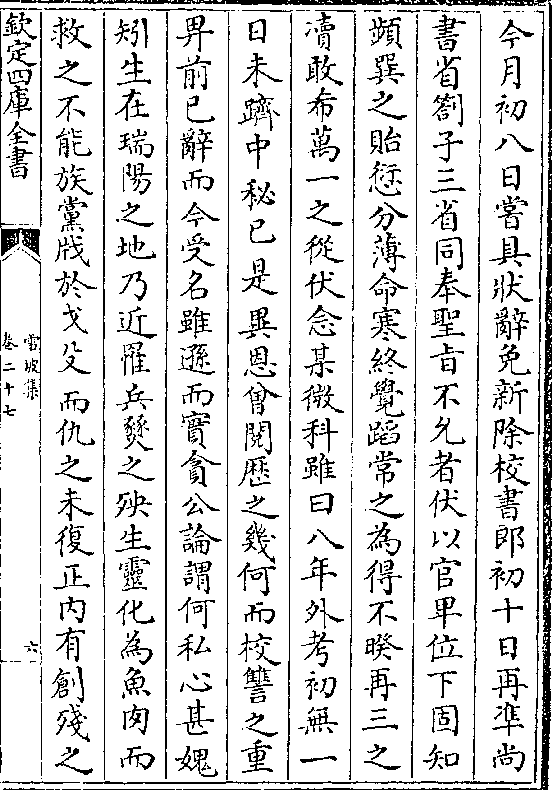 今月初八日嘗具狀辭免新除校書郎初十日再準尚
書省劄子三省同奉聖旨不允者伏以官卑位下固知
頻巽之貽愆分薄命寒終覺蹈常之為得不睽再三之
凟敢布萬一之從伏念某微科雖曰八年外考初無一
日未躋中秘已是異恩曾閱歴之幾何而校讐之重
畀前已辭而今受名雖遜而實貪公論謂何私心甚媿
矧生在瑞陽之地乃近罹兵燹之殃生靈化為魚肉而
救之不能族黨戕於戈殳而仇之未復正内有創殘之
欽定四庫全書
雪坡集
卷二十七
六